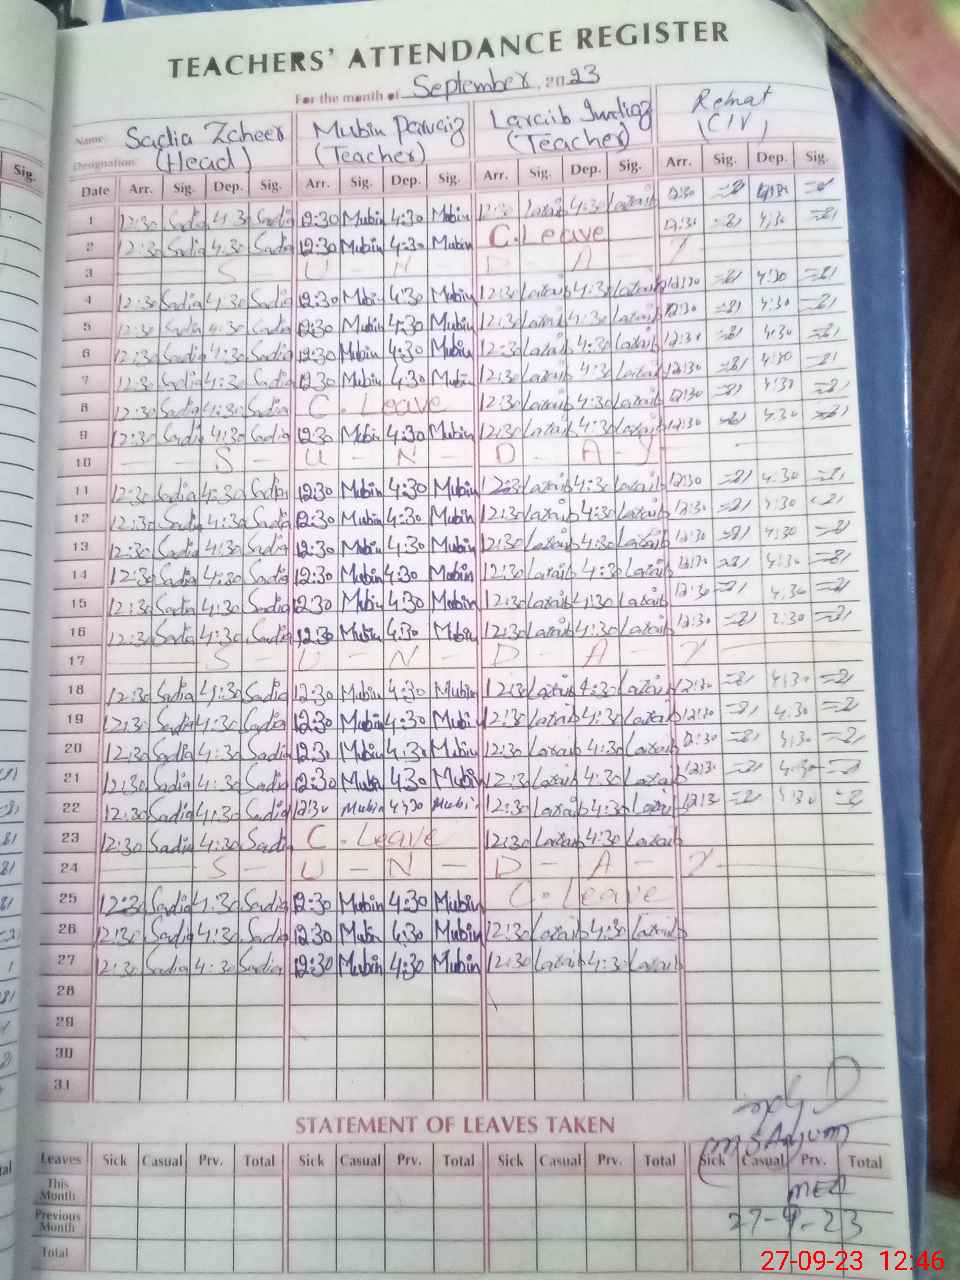 TEACHERS' ATTENDANCE REGISTER
For the month of September, 2023
Name: Sadia Zaheer Mubin Parvaiz Laraib Imtiaz Rehmat
Designation: (Head) (Teacher) (Teacher) (CIV)
Sig.
Date Arr. Sig. Dep. Sig. Arr. Sig. Dep. Sig. Arr. Sig. Dep. Sig. Arr. Sig. Dep. Sig.
1 12:30 Sadia 4:30 Sadia 12:30 Mubin 4:30 Mubin 12:30 Laraib 4:30 Laraib 12:30 4:30
2 12:30 Sadia 4:30 Sadia 12:30 Mubin 4:30 Mubin C. Leave 12:30 4:30
3 S U N D A Y
4 12:30 Sadia 4:30 Sadia 12:30 Mubin 4:30 Mubin 12:30 Laraib 4:30 Laraib 12:30 4:30
5 12:30 Sadia 4:30 Sadia 12:30 Mubin 4:30 Mubin 12:30 Laraib 4:30 Laraib 12:30 4:30
6 12:30 Sadia 4:30 Sadia 12:30 Mubin 4:30 Mubin 12:30 Laraib 4:30 Laraib 12:30 4:30
7 12:30 Sadia 4:30 Sadia 12:30 Mubin 4:30 Mubin 12:30 Laraib 4:30 Laraib 12:30 4:30
8 12:30 Sadia 4:30 Sadia C. Leave 12:30 Laraib 4:30 Laraib 12:30 4:30
9 12:30 Sadia 4:30 Sadia 12:30 Mubin 4:30 Mubin 12:30 Laraib 4:30 Laraib 12:30 4:30
10 S U N D A Y
11 12:30 Sadia 4:30 Sadia 12:30 Mubin 4:30 Mubin 12:30 Laraib 4:30 Laraib 12:30 4:30
12 12:30 Sadia 4:30 Sadia 12:30 Mubin 4:30 Mubin 12:30 Laraib 4:30 Laraib 12:30 4:30
13 12:30 Sadia 4:30 Sadia 12:30 Mubin 4:30 Mubin 12:30 Laraib 4:30 Laraib 12:30 4:30
14 12:30 Sadia 4:30 Sadia 12:30 Mubin 4:30 Mubin 12:30 Laraib 4:30 Laraib 4:30
15 12:30 Sadia 4:30 Sadia 12:30 Mubin 4:30 Mubin 12:30 Laraib 4:30 Laraib 12:30 4.30
16 12:30 Sadia 4:30 Sadia 12:30 Mubin 4:30 Mubin 12:30 Laraib 4:30 Laraib 12:30
17 S U N D A Y
18 12:30 Sadia 4:30 Sadia 12:30 Mubin 4:30 Mubin 12:30 Laraib 4:30 Laraib 12:30 4:30
19 12:30 Sadia 4:30 Sadia 12:30 Mubin 4:30 Mubin 12:30 Laraib 4:30 Laraib 12:30 4.30
20 12:30 Sadia 4:30 Sadia 12:30 Mubin 4:30 Mubin 12:30 Laraib 4:30 Laraib 12:30 4:30
21 12:30 Sadia 4:30 Sadia 12:30 Mubin 4:30 Mubin 12:30 Laraib 4:30 Laraib 12:30 4:30
22 12:30 Sadia 4:30 Sadia 12:30 Mubin 4:30 Mubin 12:30 Laraib 4:30 Laraib 12:30 4:30
23 12:30 Sadia 4:30 Sadia C. Leave 12:30 Laraib 4:30 Laraib
24 S U N D A Y
25 12:30 Sadia 4:30 Sadia 12:30 Mubin 4:30 Mubin C. Leave
26 12:30 Sadia 4:30 Sadia 12:30 Mubin 4:30 Mubin 12:30 Laraib 4:30 Laraib
27 12:30 Sadia 4:30 Sadia 12:30 Mubin 4:30 Mubin 12:30 Laraib 4:30 Laraib
28
29
30
31
STATEMENT OF LEAVES TAKEN
(M S Anjum)
Leaves Sick Casual Prv. Total Sick Casual Prv. Total Sick Casual Prv. Total Sick Casual Prv. Total
This Month
MEA
Previous Month
27-9-23
Total
27-09-23 12:46